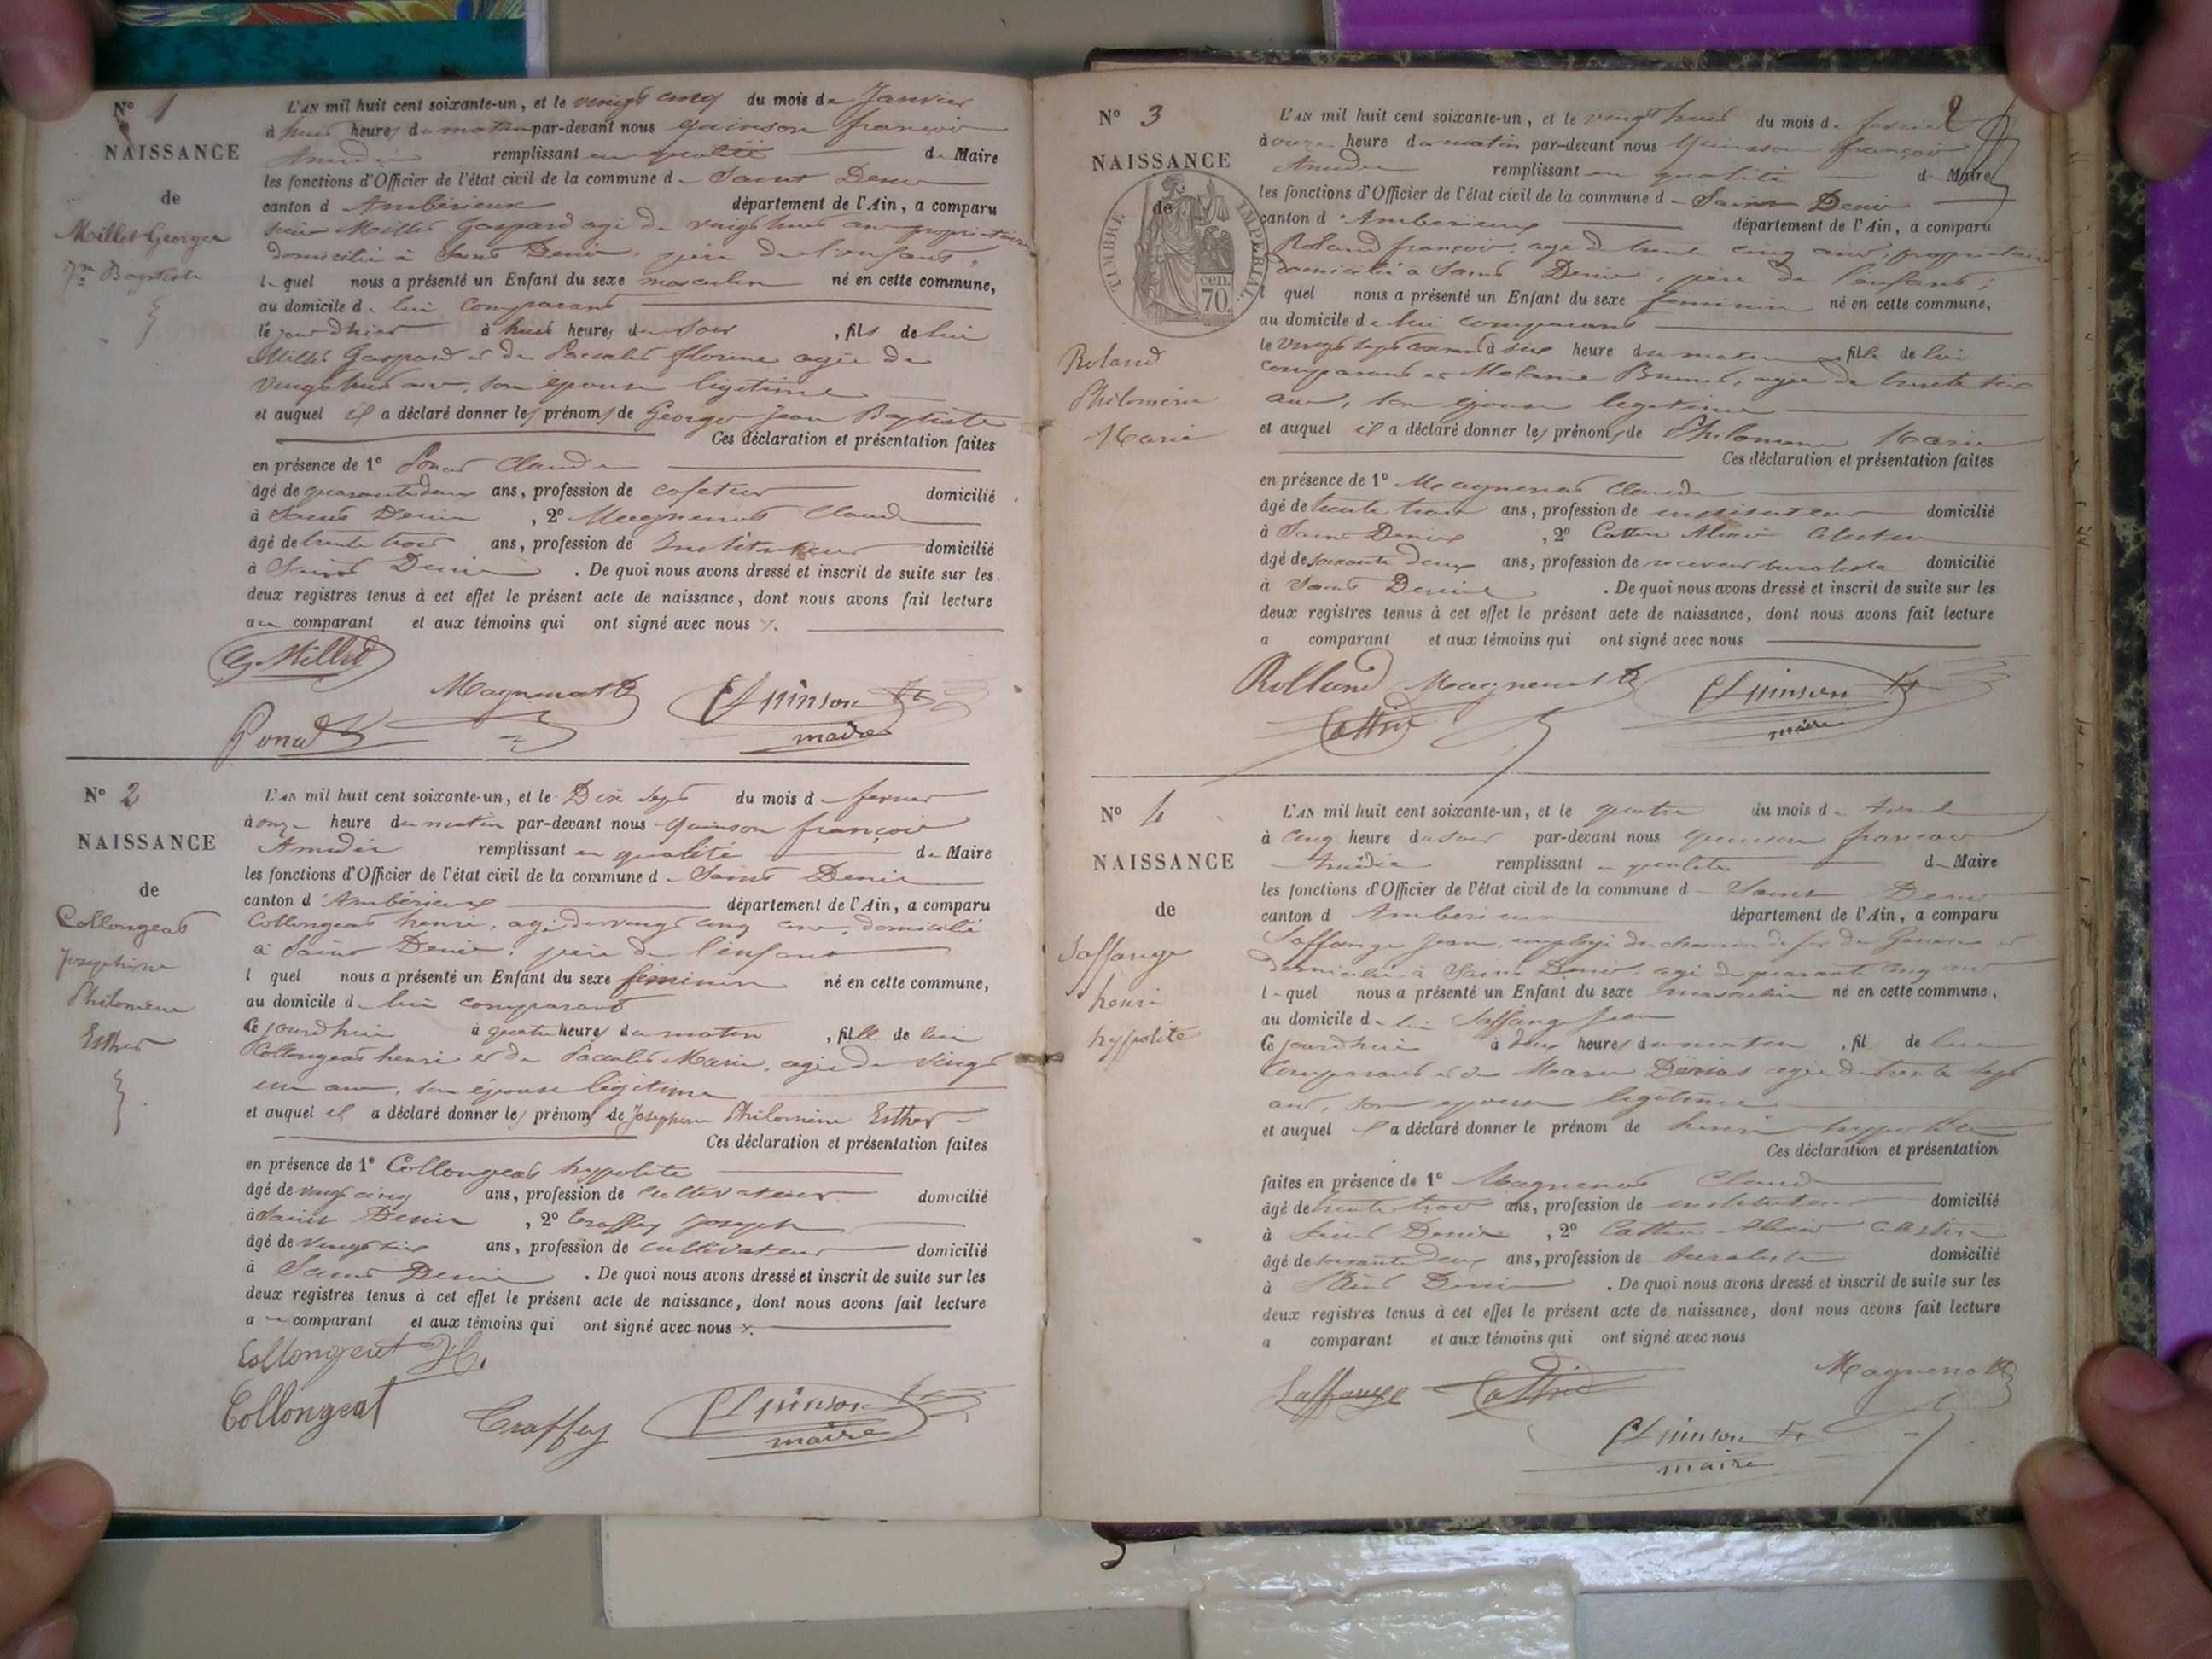 N° 1
NAISSANCE
de
Millet Georges
Jn Baptiste
L'AN mil huit cent soixante-un, et le vingt cinq du mois de Janvier
à huit heures du matin par-devant nous Quinson françois
Amédée remplissant en qualité de Maire
les fonctions d'Officier de l'état civil de la commune de Saint Denis
canton d'Ambérieux département de l'Ain, a comparu
sieur Millet Gaspard agé de vingt huit ans propriétaire
domicilié à Saint Denis, père de l'enfant,
lequel nous a présenté un Enfant du sexe masculin né en cette commune,
au domicile de lui comparant
le jour d'hier à huit heures du soir, fils de lui
Millet Gaspard et de Pacalet florine agée de
vingt huit ans, son épouse légitime
et auquel il a déclaré donner les prénoms de Georges Jean Baptiste
Ces déclaration et présentation faites
en présence de 1° Claude
âgé de quarante deux ans, profession de cafetier domicilié
à Saint Denis, 2° Magnenot Claude
âgé de trente trois ans, profession de Instituteur domicilié
à Saint Denis. De quoi nous avons dressé et inscrit de suite sur les
deux registres tenus à cet effet le présent acte de naissance, dont nous avons fait lecture
au comparant et aux témoins qui ont signé avec nous
G. Millet
Magnenot Quinson
maire
N° 2
NAISSANCE
de
Collongeat
Josephine
Philomène
Esther
L'AN mil huit cent soixante-un, et le Dix sept du mois de fevrier
à onze heure du matin par-devant nous Quinson françois
Amédée remplissant en qualité de Maire
les fonctions d'Officier de l'état civil de la commune de Saint Denis
canton d'Ambérieux département de l'Ain, a comparu
Collongeat henri, agé de vingt cinq ans, domicilié
à Saint Denis, père de l'enfant
lequel nous a présenté un Enfant du sexe feminin né en cette commune,
au domicile de lui comparant
Ce jourd'hui à quatre heures du matin, fille de lui
Collongeat henri et de Pacalet Marie, agée de vingt
un ans, son épouse légitime
et auquel il a déclaré donner les prénoms de Josephine Philomène Esther
Ces déclaration et présentation faites
en présence de 1° Collongeat hypolite
âgé de vingt cinq ans, profession de cultivateur domicilié
à Saint Denis, 2° Craffey Joseph
âgé de vingt six ans, profession de cultivateur domicilié
à Saint Denis. De quoi nous avons dressé et inscrit de suite sur les
deux registres tenus à cet effet le présent acte de naissance, dont nous avons fait lecture
au comparant et aux témoins qui ont signé avec nous
Collongeat H.
Collongeat Craffey Quinson
maire
2
N° 3
NAISSANCE
de
TIMBRE IMPÉRIAL
cen.
70
Roland
Philomène
Marie
L'AN mil huit cent soixante-un, et le vingt huit du mois de fevrier
à onze heure du matin par-devant nous Quinson françois
Amédée remplissant en qualité de Maire
les fonctions d'Officier de l'état civil de la commune de Saint Denis
canton d'Ambérieux département de l'Ain, a comparu
Roland françois, agé de trente cinq ans, propriétaire
domicilié à Saint Denis, père de l'enfant;
lequel nous a présenté un Enfant du sexe feminin né en cette commune,
au domicile de lui comparant
le vingt sept courant à six heure du matin fille de lui
comparant et Melanie Brunet, agée de trente six
ans, son épouse légitime
et auquel il a déclaré donner les prénoms de Philomène Marie
Ces déclaration et présentation faites
en présence de 1° Magnenot Claude
âgé de trente trois ans, profession de instituteur domicilié
à Saint Denis, 2° Cottin Alexis Celestin
âgé de soixante deux ans, profession de receveur buraliste domicilié
à Saint Denis. De quoi nous avons dressé et inscrit de suite sur les
deux registres tenus à cet effet le présent acte de naissance, dont nous avons fait lecture
a comparant et aux témoins qui ont signé avec nous
Rolland Magnenot Quinson
Cottin maire
N° 4
NAISSANCE
de
Laffange
henri
hypolite
L'AN mil huit cent soixante-un, et le quatre du mois d'Avril
à cinq heure du soir par-devant nous Quinson francois
Amédée remplissant en qualité de Maire
les fonctions d'Officier de l'état civil de la commune de Saint Denis
canton d'Ambérieux département de l'Ain, a comparu
Laffange Jean, employé du chemin de fer de Genève et
domicilié à Saint Denis, agé de quarante cinq ans
lequel nous a présenté un Enfant du sexe masculin né en cette commune,
au domicile de lui Laffange Jean
Ce jourd'hui à deux heures du matin, fil de lui
Comparant et de Marie agée de trente sept
ans, son épouse légitime
et auquel il a déclaré donner le prénom de henri hypolite
Ces déclaration et présentation
faites en présence de 1° Magnenot Claude
âgé de trente trois ans, profession de instituteur domicilié
à Saint Denis, 2° Cottin Alexis Celestin
âgé de soixante deux ans, profession de buraliste domicilié
à Saint Denis. De quoi nous avons dressé et inscrit de suite sur les
deux registres tenus à cet effet le présent acte de naissance, dont nous avons fait lecture
a comparant et aux témoins qui ont signé avec nous
Laffange Cottin Magnenot
Quinson
maire